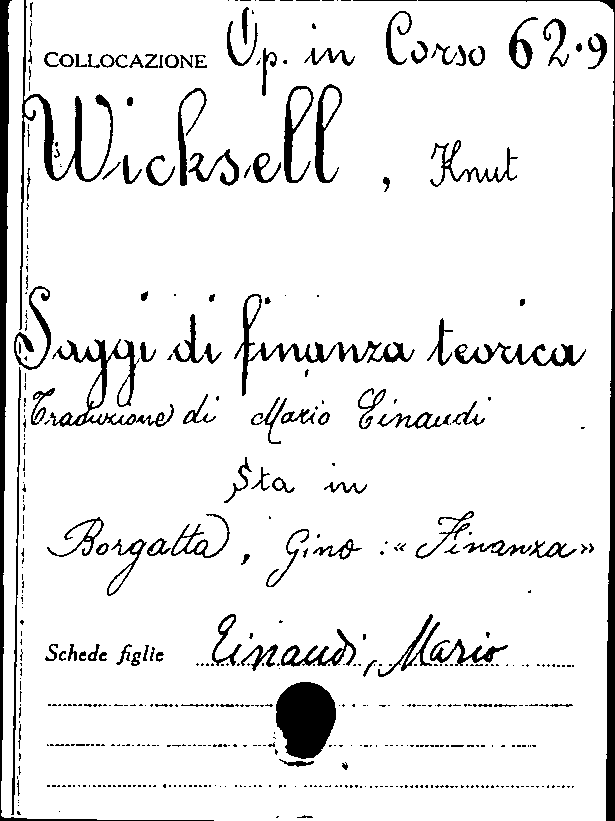 COLLOCAZIONE Op. in Corso 62.9
Wicksell, Knut
Saggi di finanza teorica
Traduzione di Mario Einaudi
Sta in
Borgatta, Gino : « Finanza »
Schede figlie Einaudi, Mario